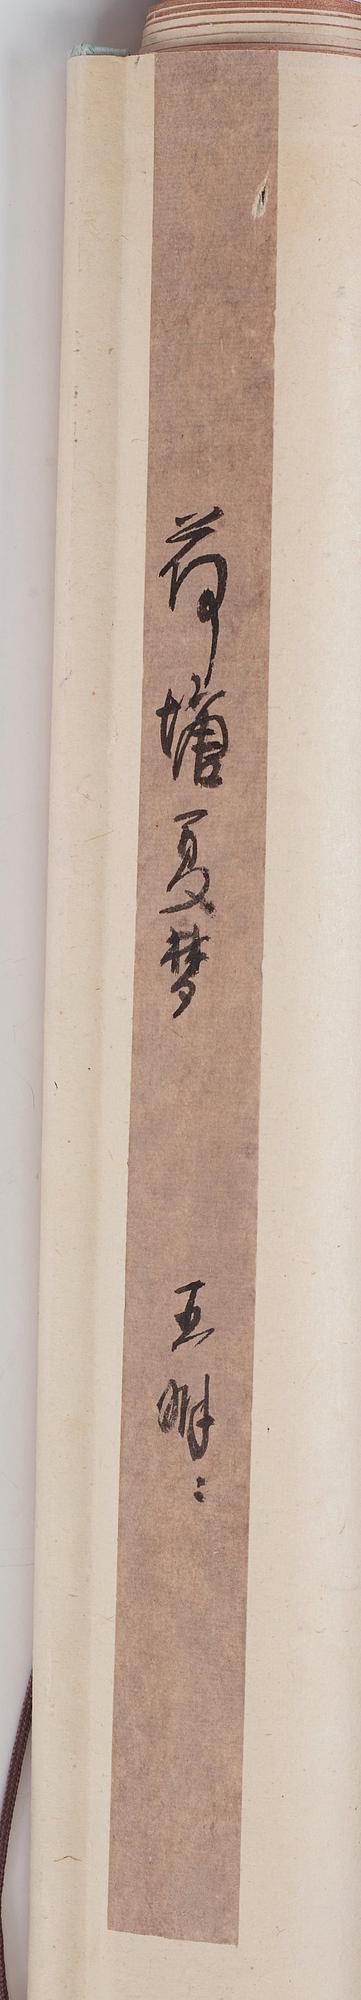 荷塘夏梦 王明〻